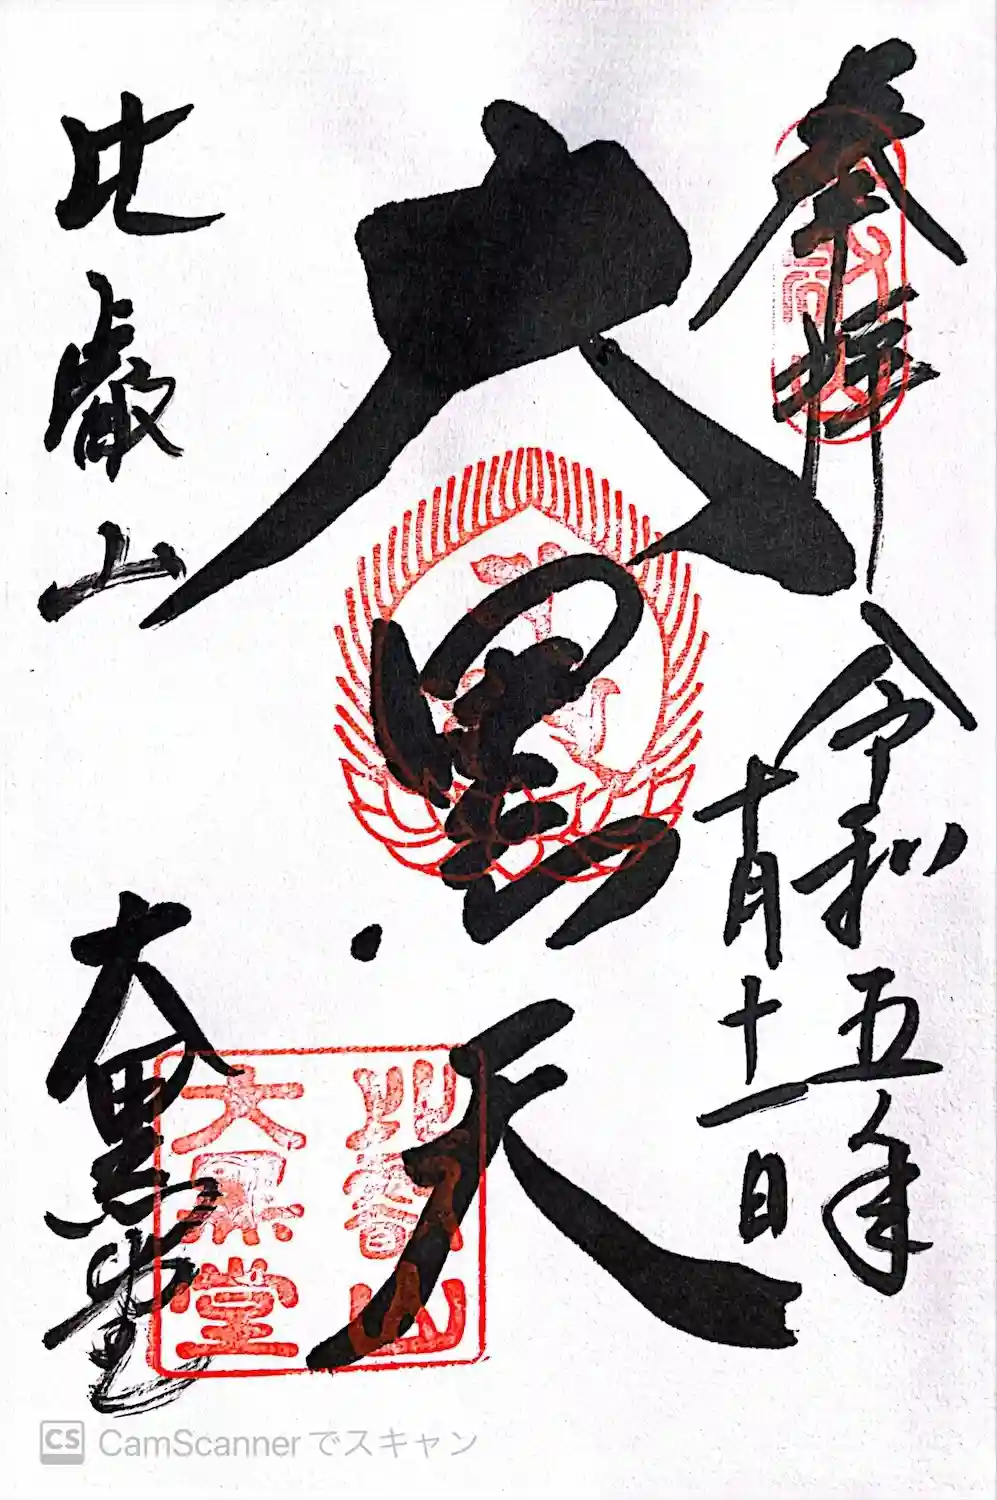 奉拝
令和五年
十月十一日
大黒天
比叡山
大黒堂
比叡山
大黒堂
CS CamScannerでスキャン